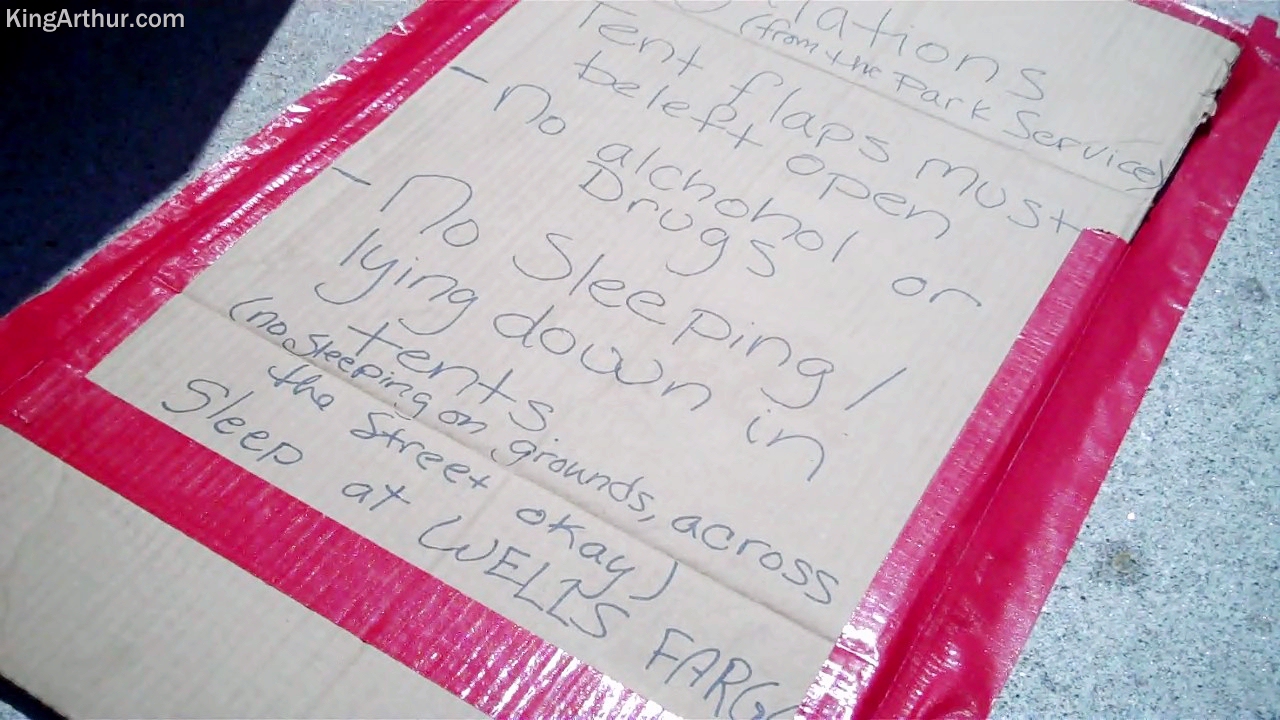 KingArthur.com
lations
(from the Park Service)
Tent flaps must
be left open
- No alchohol or
Drugs
- No Sleeping /
lying down in
tents
(no sleeping on grounds, across
the street okay)
Sleep at WELLS FARG